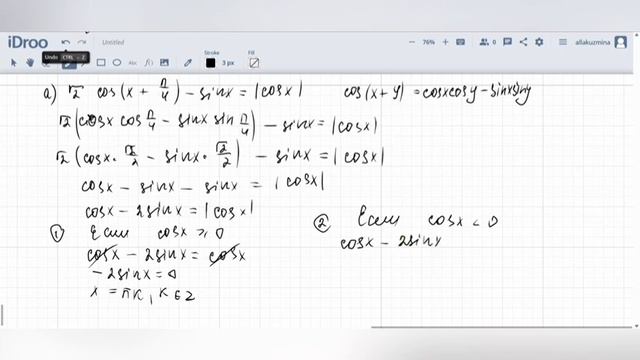 iDroo
Untitled
76%
0
allakuzmina
Undo CTRL + Z
Stroke
3 px
Fill
a) √2 cos(x + π/4) - sinx = |cosx|
cos(x + y) = cosxcosy - sinxsiny
√2 (cosx cos π/4 - sinx sin π/4) - sinx = |cosx|
√2 (cosx · √2/2 - sinx · √2/2) - sinx = |cosx|
cosx - sinx - sinx = |cosx|
cosx - 2sinx = |cosx|
① Если cosx ≥ 0
cosx - 2sinx = cosx
- 2sinx = 0
x = πk, k ∈ z
② Если cosx < 0
cosx - 2sinx